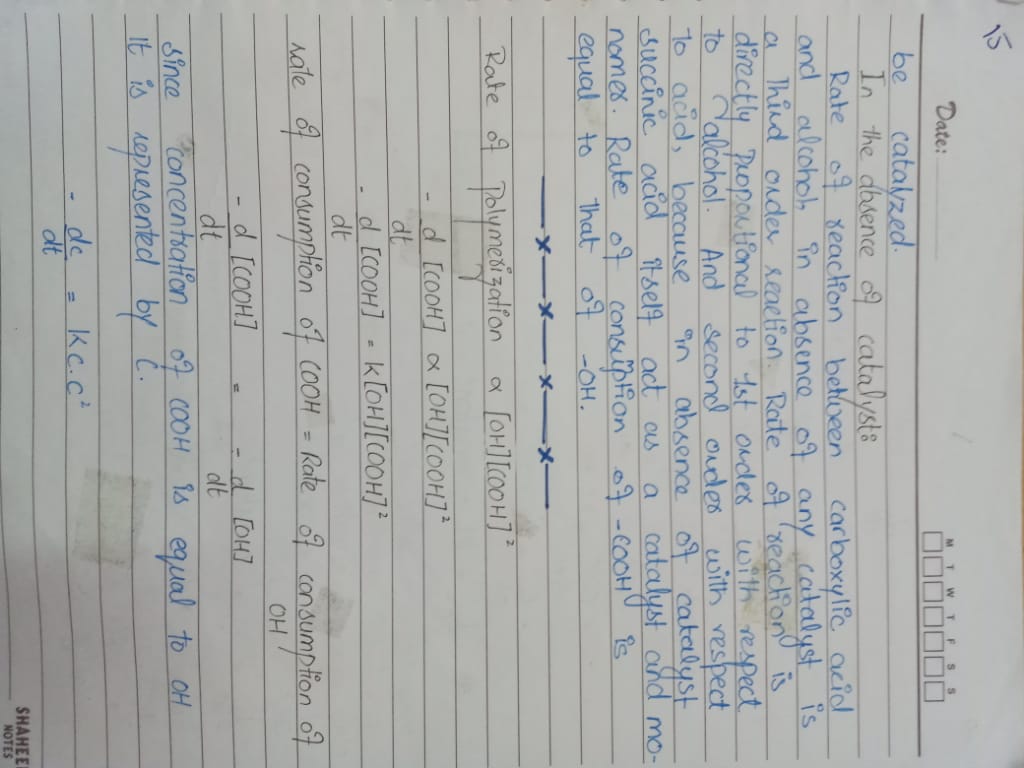 15
Date:
M T W T F S S
be catalyzed.
In the absence of catalyst:
Rate of reaction between carboxylic acid
and alcohol, in absence of any catalyst is
a Third order reaction. Rate of reaction is
directly propoutional to 1st order with respect
to alcohol. And second order with respect
to acid, because in absence of catalyst
succinic acid itself act as a catalyst and mo-
nomer. Rate of consumption of -COOH is
equal to that of -OH.
Rate of Polymerization ∝ [OH][COOH]²
- d/dt [COOH] ∝ [OH][COOH]²
- d/dt [COOH] = k[OH][COOH]²
rate of consumption of COOH = Rate of consumption of
OH
- d/dt [COOH] = - d/dt [OH]
since concentration of COOH is equal to OH
It is represented by C.
- dc/dt = K C. C²
SHAHEE
NOTES